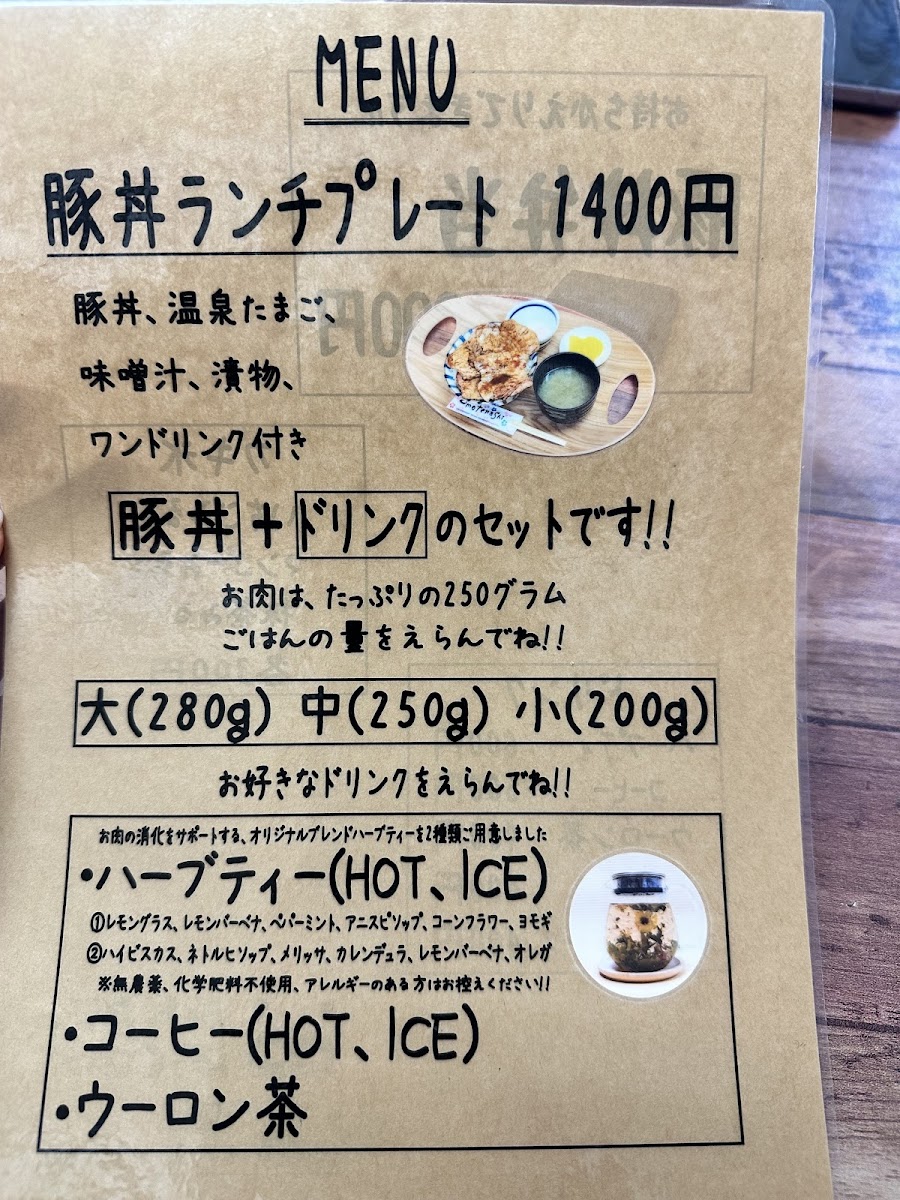 MENU
豚丼ランチプレート 1400円
豚丼、温泉たまご、
味噌汁、漬物、
ワンドリンク付き
Omotenashi
豚丼+ドリンクのセットです!!
お肉は、たっぷりの250グラム
ごはんの量をえらんでね!!
大(280g) 中(250g) 小(200g)
お好きなドリンクをえらんでね!!
お肉の消化をサポートする、オリジナルブレンドハーブティーを2種類ご用意しました
・ハーブティー(HOT、ICE)
①レモングラス、レモンバーベナ、ペパーミント、アニスピソップ、コーンフラワー、ヨモギ
②ハイビスカス、ネトルヒソップ、メリッサ、カレンデュラ、レモンバーベナ、オレガ
※無農薬、化学肥料不使用、アレルギーのある方はお控えください!!
・コーヒー(HOT、ICE)
・ウーロン茶